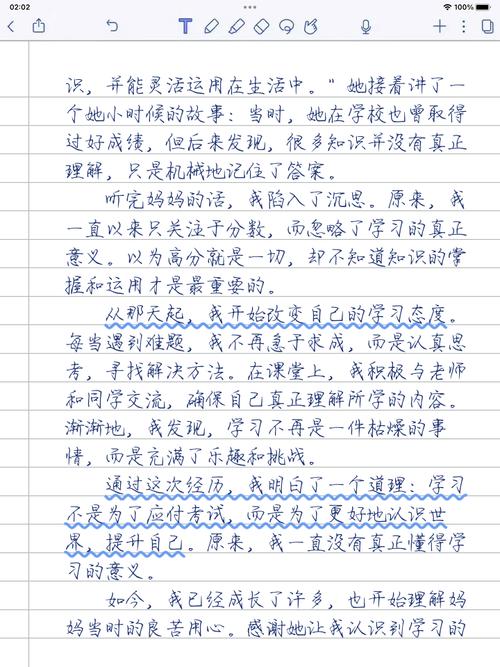 02:02
100%
识，并能灵活运用在生活中。"她接着讲了一
个她小时候的故事：当时，她在学校也曾取得
过好成绩，但后来发现，很多知识并没有真正
理解，只是机械地记住了答案。
听完妈妈的话，我陷入了沉思。原来，我
一直以来只关注于分数，而忽略了学习的真正
意义。以为高分就是一切，却不知道知识的掌
握和运用才是最重要的。
从那天起，我开始改变自己的学习态度。
每当遇到难题，我不再急于求成，而是认真思
考，寻找解决方法。在课堂上，我积极与老师
和同学交流，确保自己真正理解所学的内容。
渐渐地，我发现，学习不再是一件枯燥的事
情，而是充满了乐趣和挑战。
通过这次经历，我明白了一个道理：学习
不是为了应付考试，而是为了更好地认识世
界，提升自己。原来，我一直没有真正懂得学
习的意义。
如今，我已经成长了许多，也开始理解妈
妈当时的良苦用心。感谢她让我认识到学习的